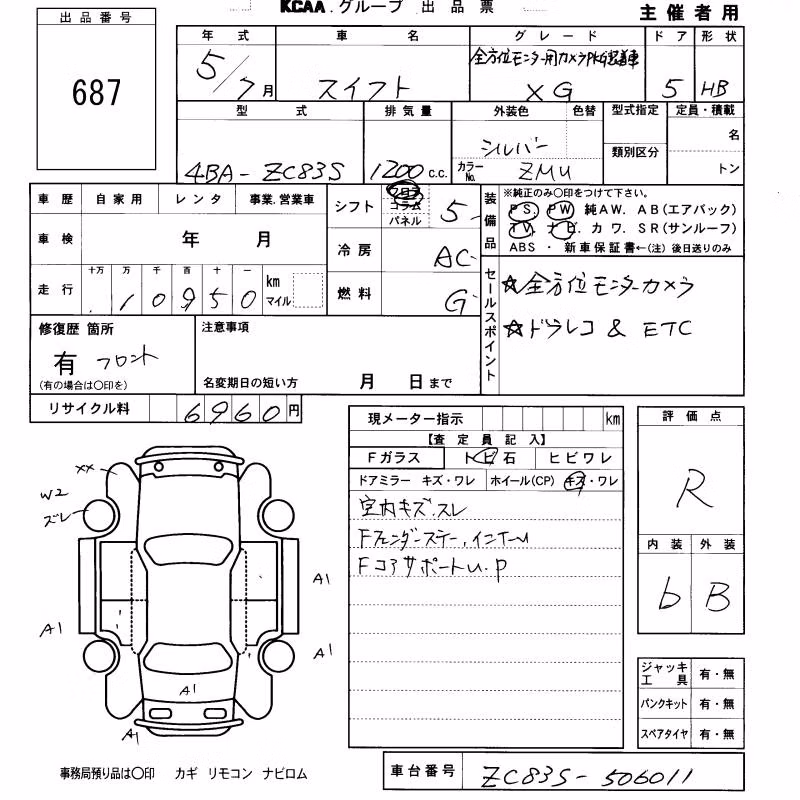 KCAA.グループ 出品票
主催者用
出品番号
687
年式 車名 グレード ドア 形状
5/7月 スイフト 全方位モニター用カメラPKG装着車 XG 5 HB
型式 排気量 外装色 色替 型式指定 定員・積載
4BA-ZC83S 1200 c.c. シルバー
カラーNo. ZMU
類別区分
名
トン
車歴 自家用 レンタ 事業.営業車
車検 年 月
走行 十万 万 千 百 十 一
10950 km マイル
シフト フロア コラム パネル 5
冷房 AC
燃料 G
装備品
※純正のみ○印をつけて下さい。
PS. PW 純AW. AB(エアバック)
TV. ナビ カワ. SR(サンルーフ)
ABS ・ 新車保証書←(注) 後日送りのみ
セールスポイント
☆全方位モニターカメラ
☆ドラレコ & ETC
修復歴 箇所
有 フロント
(有の場合は○印を)
注意事項
名変期日の短い方 月 日まで
リサイクル料 6960円
現メーター指示 km
【査定員記入】
Fガラス トビ石 ヒビワレ
ドアミラー キズ・ワレ ホイール(CP) キズ・ワレ
室内キズ.スレ
Fフェンダーステー,インナーU
FコアサポートU.P
評価点
R
内装 外装
b B
ジャッキ工具 有・無
パンクキット 有・無
スペアタイヤ 有・無
XX
W2
ズレ
A1
A1
A1
A1
A1
事務局預り品は○印 カギ リモコン ナビロム
車台番号 ZC83S-506011